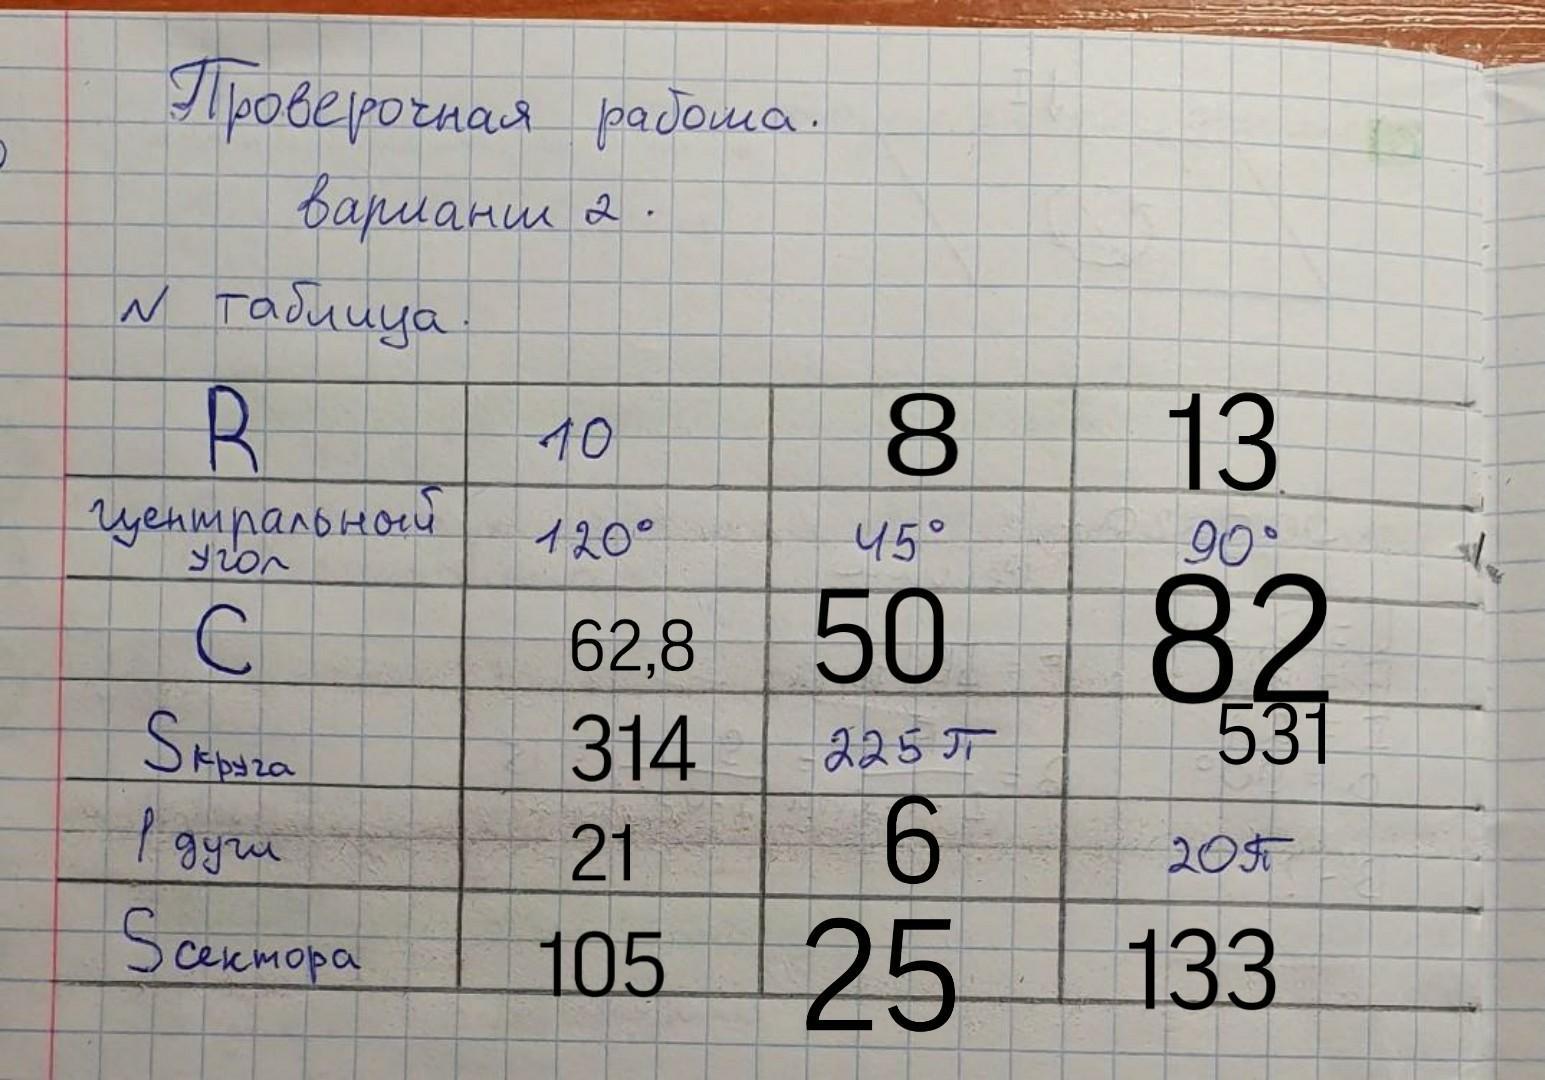 Проверочная работа.
вариант 2.
N таблица.
R 10 8 13
центральный угол 120° 45° 90°
C 62,8 50 82
Sкруга 314 225π 531
l дуги 21 6 20π
Sсектора 105 25 133